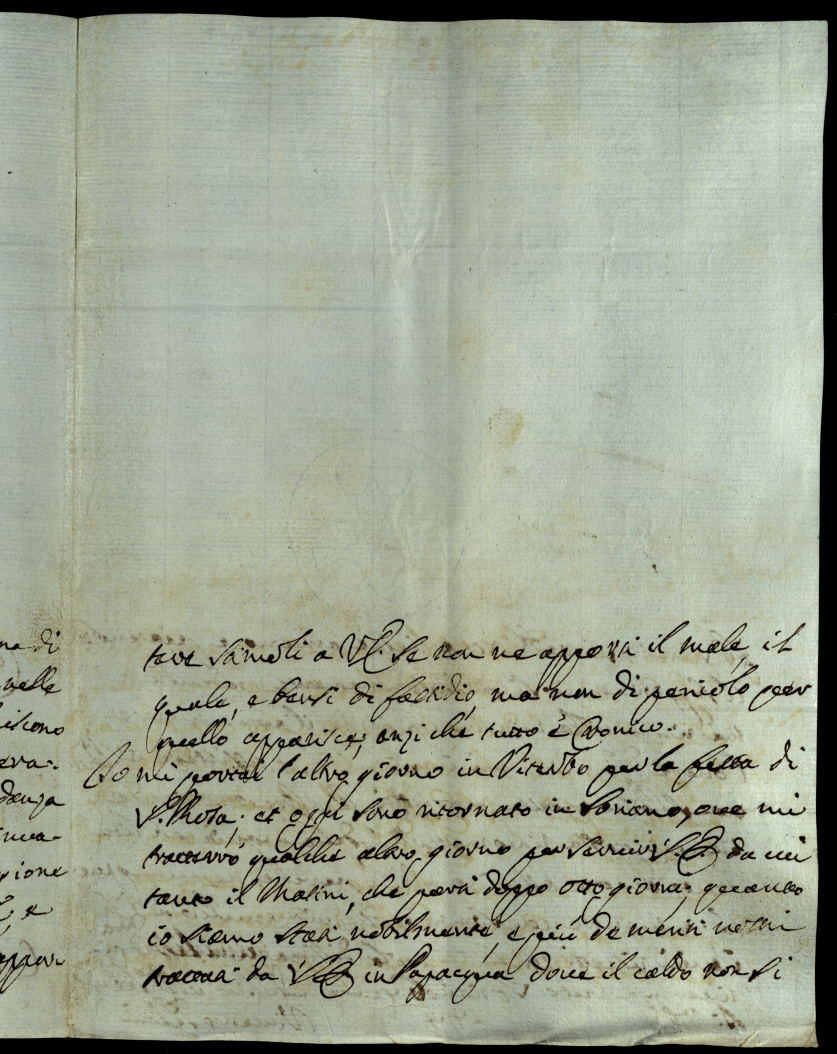 ma di
nelle
iscono
era-
denza
inca-
gione
&
appor-
tare a VS. se non ne apporta il male, il
quale, e bensi di fastidio, ma non di pericolo per
quello apparisce, anzi che tutto è cronico.
Io mi portai l'altro giorno in Viterbo per la festa di
S. Rosa; et oggi sono ritornato in Soriano, ove mi
tratterrò qualche altro giorno per servir S.E. da cui
tanto il Masini, che partì doppo otto giorni, quanto
io siamo stati nobilmente, e più de meriti nostri
trattati da S.E. in Papacqua, dove il caldo non si